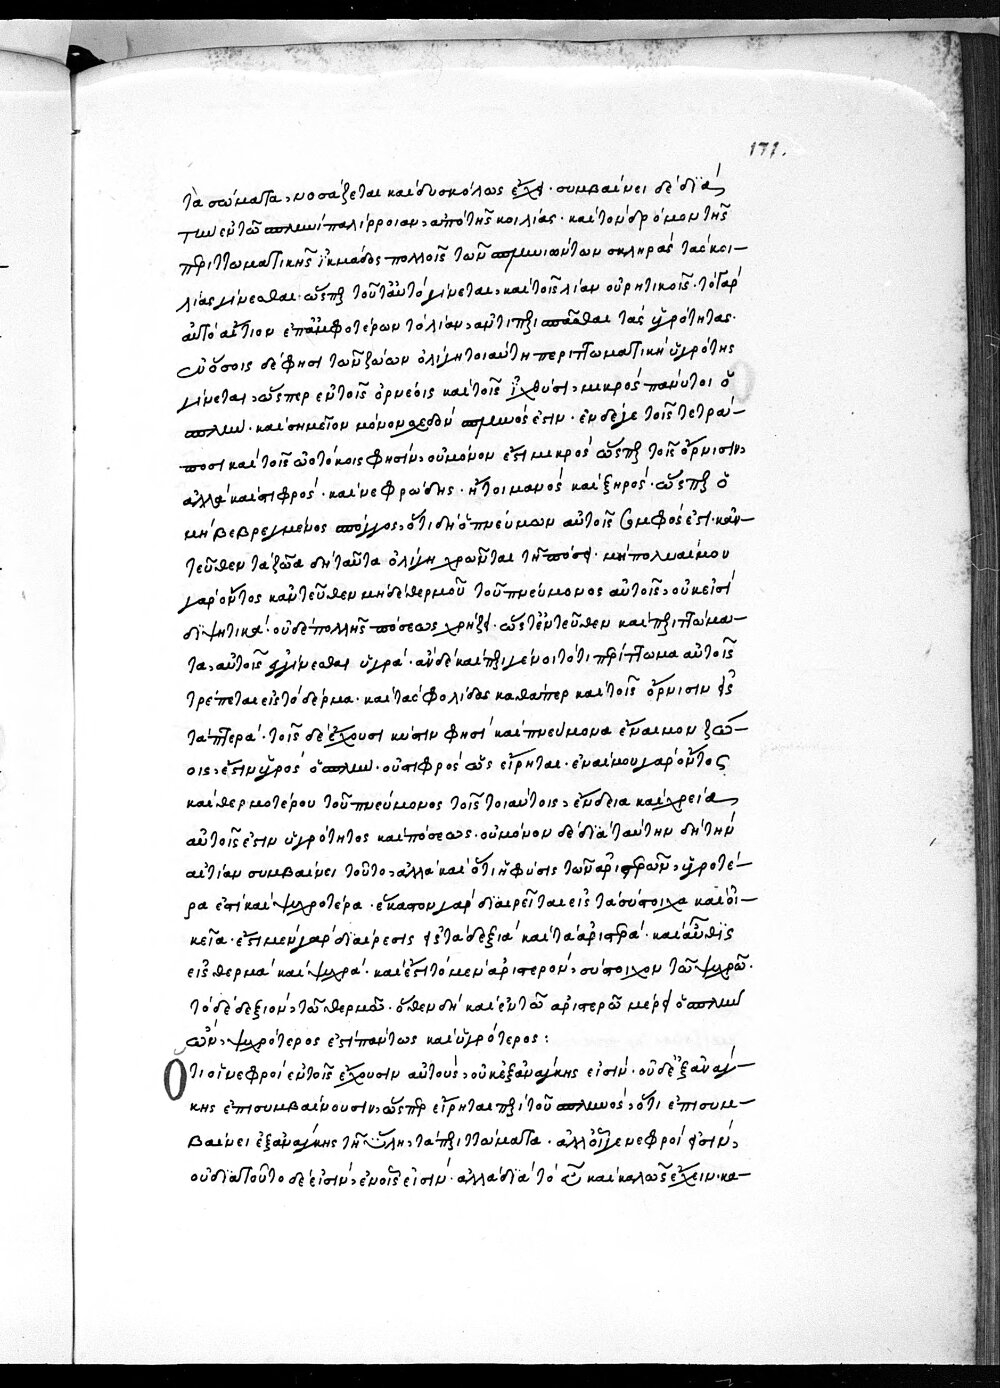 171.
τὰ σώματα, νοσάζεται καὶ δυσκόλως ἔχει· συμβαίνει δὲ διὰ
τὴν ἐν τῷ σπληνὶ παλίρροιαν, ἀπὸ τῆς κοιλίας· καὶ τὸν δρόμον τῆς
περιττωματικῆς ἰκμάδος πολλοῖς τῶν σπληνιώντων σκληρὰς τὰς κοι-
λίας γίνεσθαι· ὥσπερ τοῦτ᾽ αὐτὸ γίνεται, καὶ τοῖς λίαν οὐρητικοῖς· τὸ γὰρ
αὐτὸ αἴτιον ἐπ᾽ ἀμφοτέρων τὸ λίαν, ἀντιπερισπᾶσθαι τὰς ὑγρότητας·
ἐν ὅσοις δέ φησι τῶν ζώων ὀλίγη τοιαύτη περιττωματικὴ ὑγρότης
γίνεται, ὥσπερ ἐν τοῖς ὀρνέοις καὶ τοῖς ἰχθύσι, μικρὸς πάνυ τοι ὁ
σπλὴν· καὶ σημεῖον μόνον σχεδὸν σπληνός ἐστιν· ἐν δέ γε τοῖς τετρά-
ποσι καὶ τοῖς ὠοτόκοις φησὶν, οὐ μόνον ἐστὶ μικρὸς ὥσπερ τοῖς ὄρνισιν,
ἀλλὰ καὶ στιφρὸς· καὶ νεφρώδης· ἤτοι μανὸς καὶ ξηρὸς· ὥσπερ ὁ
μὴ βεβρεγμένος σπόγγος, ὅτι δὴ ὁ πνεύμων αὐτοῖς σομφός ἐστι· κἀν-
τεῦθεν τὰ ζῷα δὴ ταῦτα ὀλίγη χρῶνται τῇ πόσει· μὴ πολυαίμου
γὰρ ὄντος κἀντεῦθεν μηδὲ θερμοῦ τοῦ πνεύμονος αὐτοῖς, οὐκ εἰσὶ
διψητικά· οὐδὲ πολλῆς πόσεως χρῄζει· ὥστ᾽ ἐντεῦθεν καὶ περιττώμα-
τα, αὐτοῖς γίνεσθαι ὑγρά· ἂν δὲ καὶ περιγένοιτό τι περίττωμα αὐτοῖς
τρέπεται εἰς τὸ δέρμα· καὶ τὰς φολίδας καθάπερ καὶ τοῖς ὄρνισιν εἰς
τὰ πτερά· τοῖς δὲ ἔχουσι κύστιν φησὶ καὶ πνεύμονα ἔναιμον ζώ-
οις, ἔστιν ὑγρὸς ὁ σπλὴν· οὐ στιφρὸς ὡς εἴρηται· ἐναίμου γὰρ ὄντος
καὶ θερμοτέρου τοῦ πνεύμονος τοῖς τοιούτοις, ἔνδεια καὶ χρεία,
αὐτοῖς ἐστιν ὑγρότητος καὶ πόσεως· οὐ μόνον δὲ διὰ ταύτην δὴ τὴν
αἰτίαν συμβαίνει τοῦτο, ἀλλὰ καὶ ὅτι ἡ φύσις τῶν ἀριστερῶν, ὑγροτέ-
ρα ἐστὶ καὶ ψυχροτέρα· ἕκαστον γὰρ διαιρεῖται εἰς τὰ σύστοιχα καὶ οἰ-
κεῖα· ἔστι μὲν γὰρ διαίρεσις εἰς τὰ δεξιὰ καὶ τὰ ἀριστερὰ· καὶ αὖθις
εἰς θερμὰ καὶ ψυχρά· καὶ ἔστι τὸ μὲν ἀριστερὸν, σύστοιχον τῷ ψυχρῷ·
τὸ δὲ δεξιὸν, τῷ θερμῷ· ὅθεν δὴ καὶ ἐν τῷ ἀριστερῷ μέρει ὁ σπλὴν
ὢν, ψυχρότερός ἐστι πάντως καὶ ὑγρότερος:
Ὅτι οἱ νεφροὶ ἐν τοῖς ἔχουσιν αὐτοὺς, οὐκ ἐξ ἀνάγκης εἰσίν· οὐδ᾽ ἐξ ἀνάγ-
κης ἐπισυμβαίνουσιν, ὥσπερ εἴρηται περὶ τοῦ σπληνὸς, ὅτι ἐπισυμ-
βαίνει ἐξ ἀνάγκης τῇ ὕλῃ, τὰ περιττώματα· ἀλλ᾽ οἵ γε νεφροὶ εἰσὶν,
οὐ διὰ τοῦτο δέ εἰσιν, ἐν οἷς εἰσίν· ἀλλὰ διὰ τὸ εὖ καὶ καλῶς ἔχειν· κα-